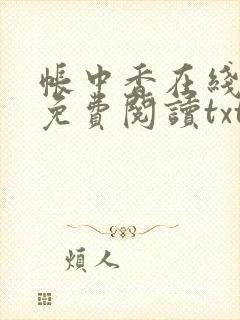 帳中香在綫
免費閱讀txt
煩人